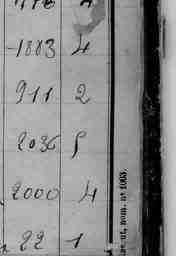 1883 4
911 2
2036 5
2000 4
22 1
nom. nº 1003.